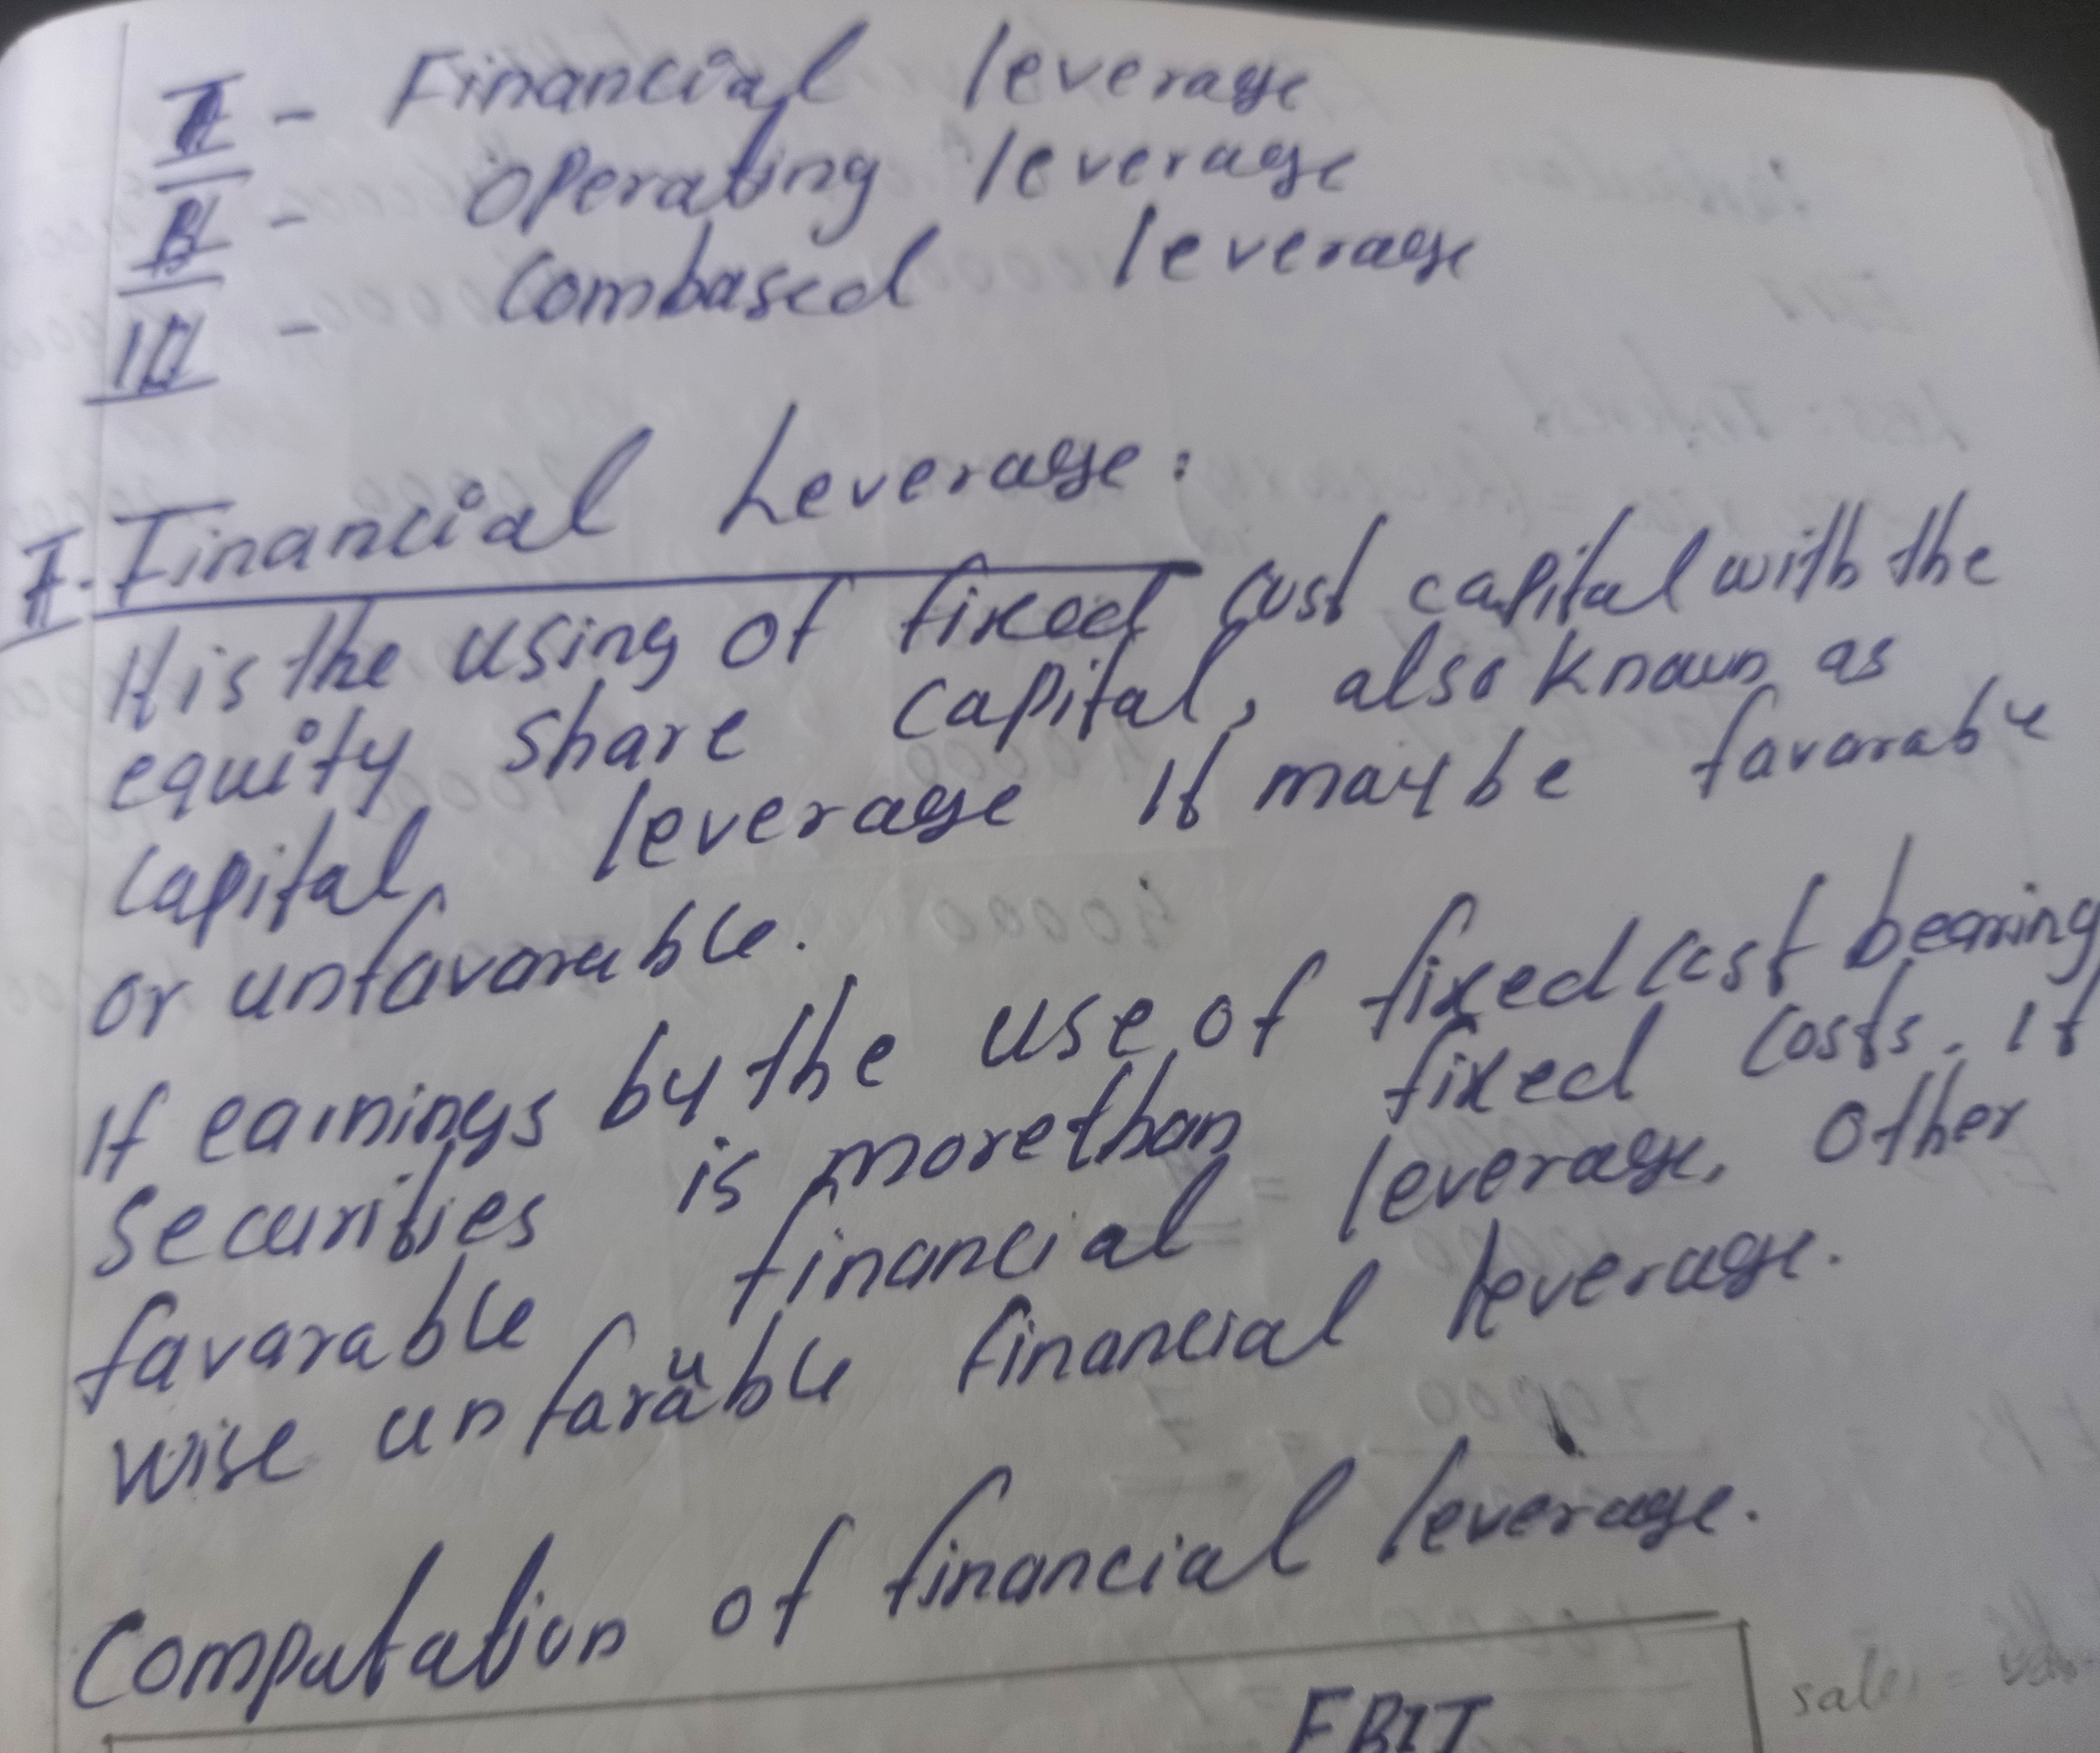 I - Financial leverage
II - operating leverage
III - Combased leverage
I. Financial Leverage:
It is the using of fixed cost capital with the
equity share capital, also known as
capital leverage It may be favarable
or unfavarable.
If earnings by the use of fixed cost bearing
securities is more than fixed costs. it
favarable financial leverage, other
wise unfaruable financial leverage.
Computation of financial leverage.
EBIT
sales =